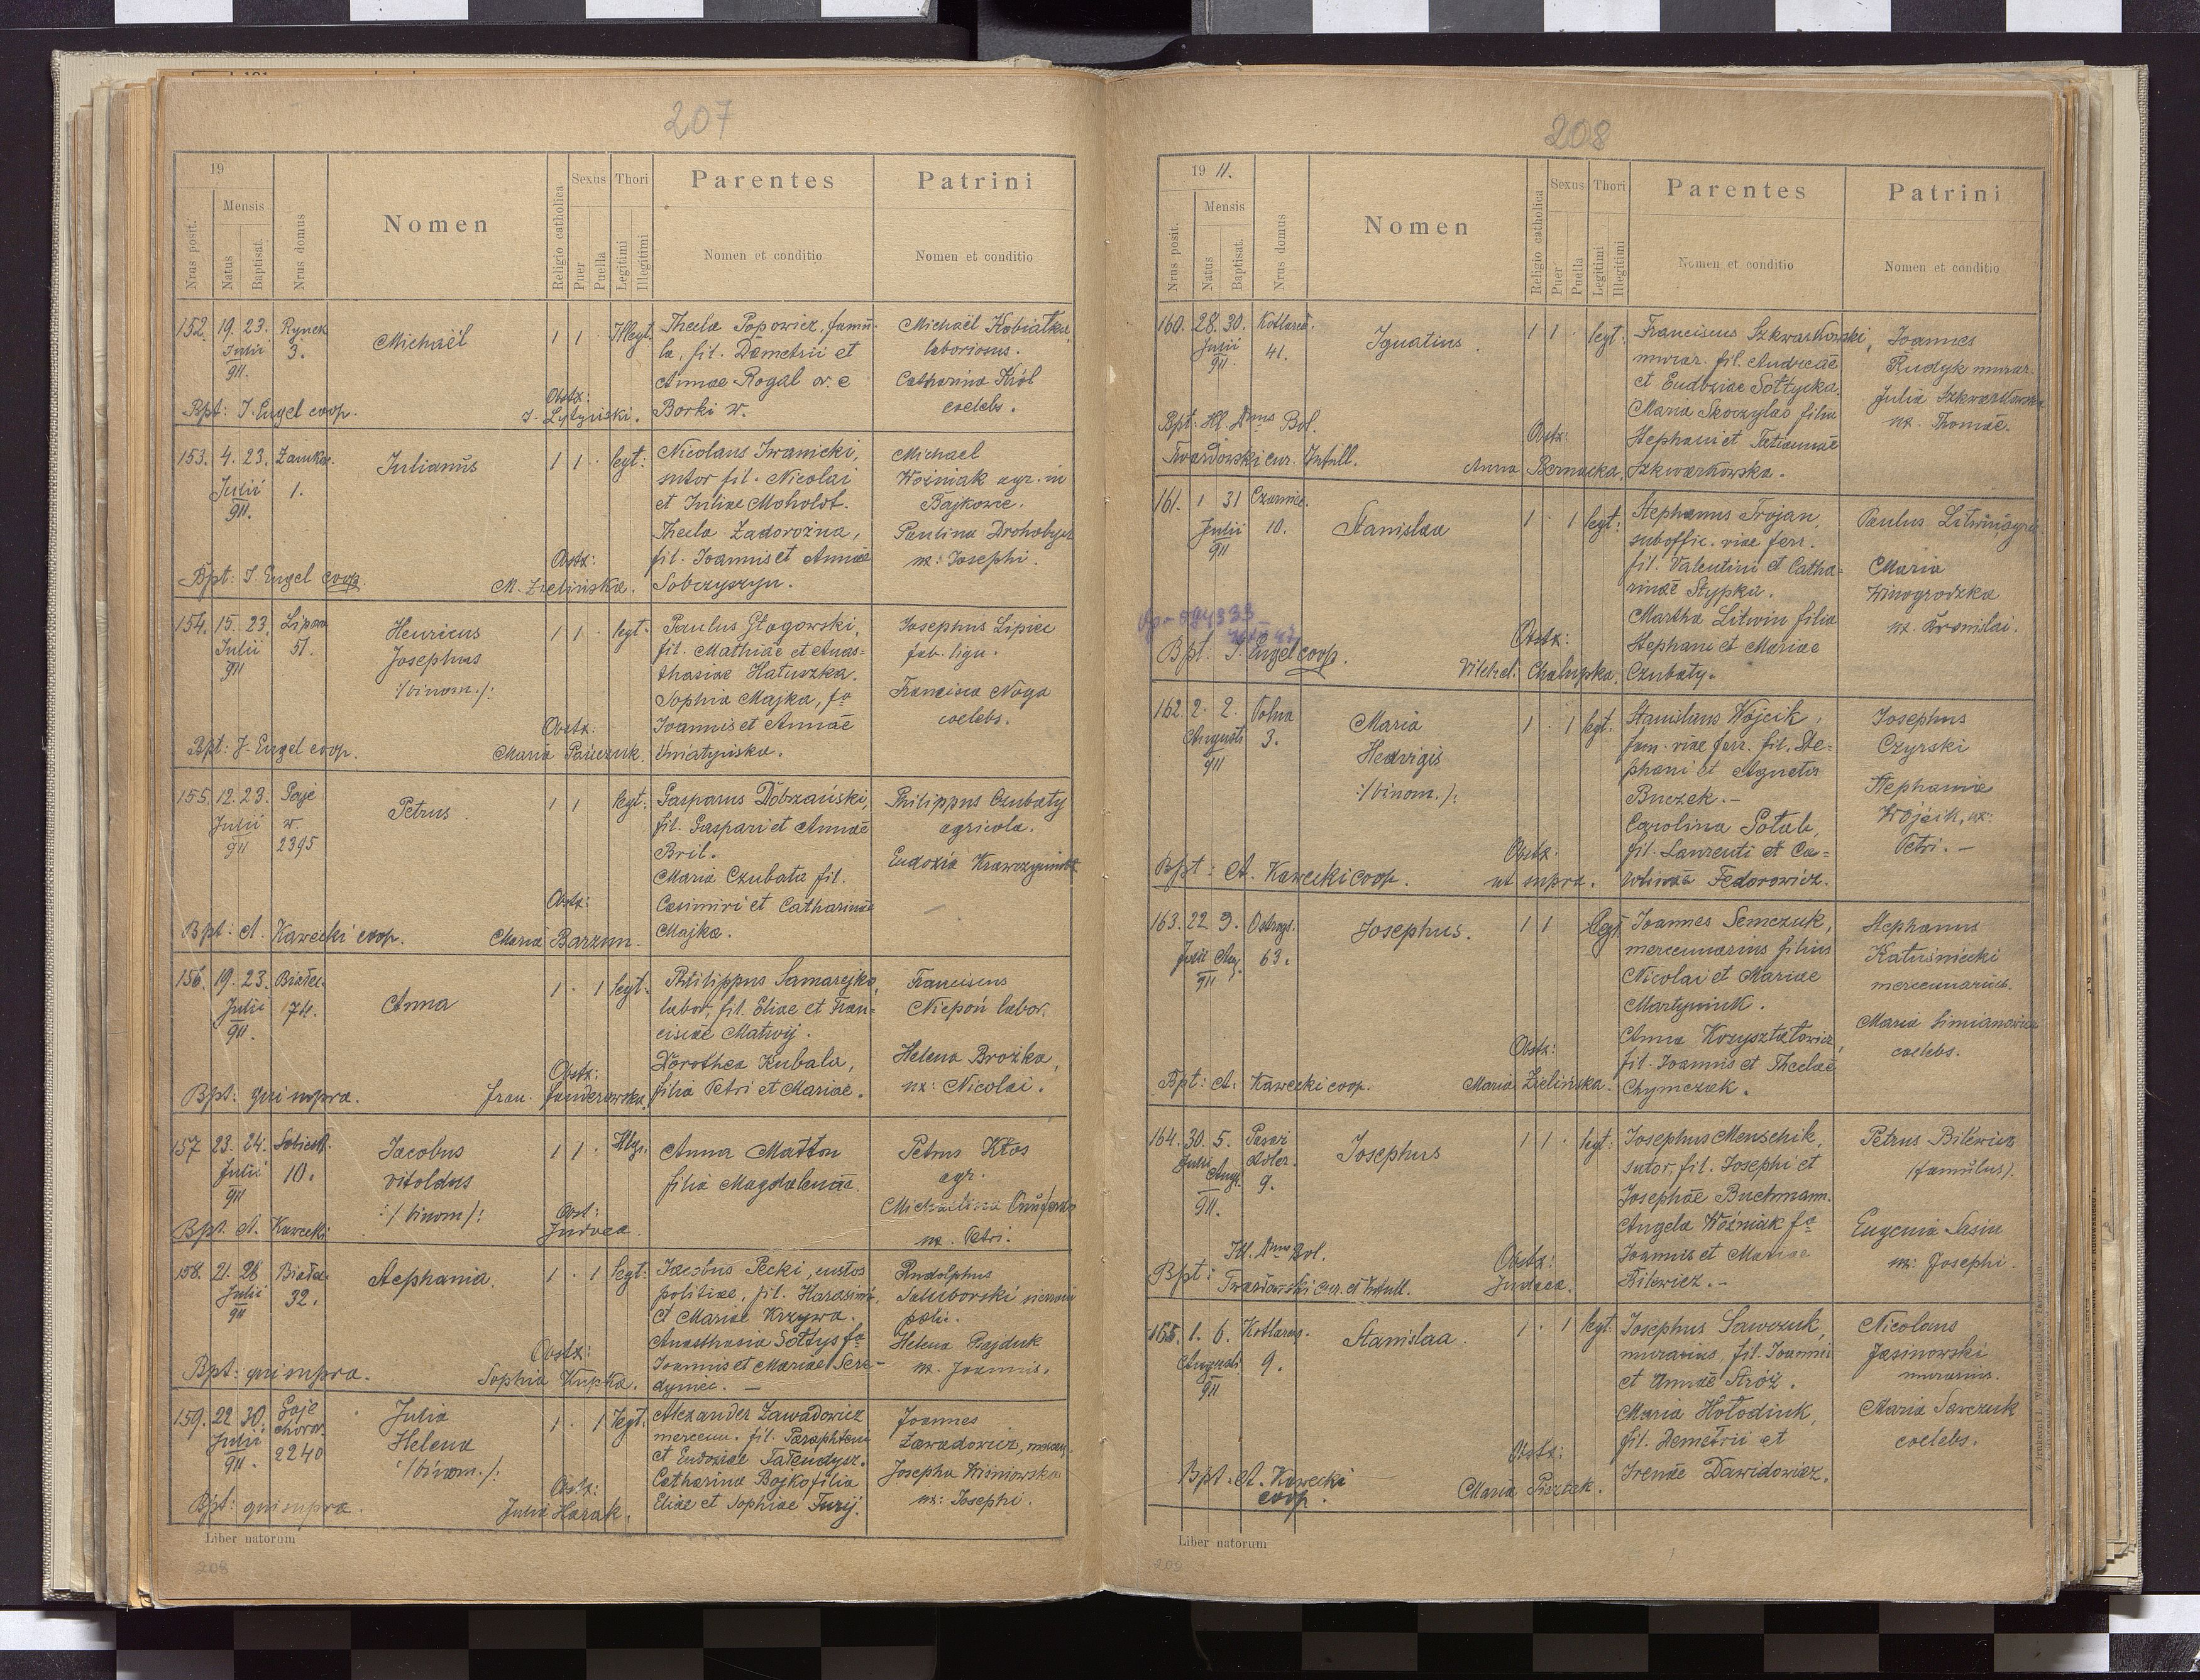 207
19
Nrus posit.
Mensis
Natus
Baptisat.
Nrus domus
Nomen
Religio catholica
Sexus
Puer
Puella
Thori
Legitimi
Illegitimi
Parentes
Nomen et conditio
Patrini
Nomen et conditio
152. 19. 23. Rynek Michaël 1 1 Illegt. Thecla Popowicz, famu- Michaël Kobiałka,
Julii 3. la, fil. Demetrii et laboriosus.
911. Annae Rogal or. e Catharina Król
Obstx: Borki w. coelebs.
Bpt: J. Engel coop. J. Łytyński.
153. 4. 23. Zamkow. Julianus 1 1 . legt: Nicolaus Iwanicki, Michael
Julii 1. sutor fil. Nicolai Woźniak agr. in
911. et Juliae Moholdt. Bajkowce.
Thecla Zadorożna, Paulina Drohobycz
Obstx: fil. Joannis et Annae ux: Josephi.
Bpt: J. Engel coop. M. Zielińska. Sobczyszyn.
154. 15. 23. Lipowa Henricus 1 1 . legt. Paulus Głogowski, Josephus Lipiec
Julii 51. Josephus fil. Mathiae et Anas- fab. lign.
911 :/binom./: thasiae Hatuszka. Francisca Noga
Sophia Majka, fa coelebs.
Obstx: Joannis et Annae
Bpt: J. Engel coop. Maria Pańczuk. Śniatyńska.
155. 12. 23. Gaje Petrus 1 1 legt: Gasparus Dobrzański, Philippus Czubaty
Julii w. fil. Gaspari et Annae agricola.
911 2395 Bril. Eudoxia
Maria Czubata fil.
Obstx: Casimiri et Catharinae
Bpt: A. Kawecki coop. Maria Barzun. Majka.
156. 19. 23. Białec. Anna 1 . 1 legt. Philippus Samarejko, Franciscus
Julii 74. labor, fil. Eliae et Fran- Niepoń labor.
911. ciscae Matwij.
Dorothea Kubala, Helena Brożka,
Obstx: filia Petri et Mariae. ux: Nicolai.
Bpt: qui supra. Fran.
157 23. 24. Sobiesk. Jacobus 1 1 . Illg. Anna Matton Petrus Kłos
Julii 10. Vitoldus filia Magdalenae. agr.
911 :/binom/: Obst: Michaelina
Bpt. A. Kawecki Judaea. ux. Petri.
158. 21. 26 Białec. Stephania. 1 . 1 legt: Jacobus Pecki, custos Rudolphus
Julii 32. politiae, fil. Harasimi
911 et Mariae Krzywa. poli.
Anasthasia Sołtys fa Helena Rajduk
Obstx: Joannis et Mariae Sere- ux. Joannis.
Bpt: qui supra. Sophia Kupka. dyniec. —
159. 22. 30. Gaje Julia 1 . 1 legt. Alexander Zawadowicz Joannes
Julii chorow. Helena mercenn. fil. Paraphteni Zawadowicz,
911. 2240 :/binom./: et Eudoxiae Tałendysz. Josepha Wiśniowska
Obstx: Catharina Bojko filia ux: Josephi.
Bpt: qui supra. Julia Harak. Eliae et Sophiae Jurij.
Liber natorum
208
208
19 11.
Nrus posit.
Mensis
Natus
Baptisat.
Nrus domus
Nomen
Religio catholica
Sexus
Puer
Puella
Thori
Legitimi
Illegitimi
Parentes
Nomen et conditio
Patrini
Nomen et conditio
160. 28. 30. Kotlarew. Ignatius. 1 1 . legt. Franciscus Szkwarkowski, Joannes
Julii 41. murar. fil. Andreae Rudyk murar.
911. et Eudoxiae Sołtycka. Julia Szkwarkowska
Maria Skoczylas filia ux. Thomae.
Bpt: Ill. Dnus Bol. Obstx: Stephani et Tatiannae
Twardowski cur. Infull. Anna Bernacka. Szkwarkowska.
161. 1 31 Czarniec. Stanislaa 1 . 1 legt: Stephanus Trojan, Paulus Litwin, agric.
Julii 10. suboffic. viae ferr.
911 fil. Valentini et Catha- Maria
rinae Stypka. Winogrodzka
Martha Litwin filia ux.
Obstx: Stephani et Mariae
Bpt. J. Engel coop. Chalupka. Czubaty.
162. 2. 2. Polna Maria 1 . 1 legt. Stanislaus Wójcik, Josephus
Augusti 3. Hedvigis fam. viae ferr. fil. Ste- Czyrski
911 :/binom./: phani et Agnetis Stephania
Buczek.— Wójcik, ux:
Carolina Sołab, Petri.—
Obstx: fil. Laurenti et Ca-
Bpt: A. Kawecki coop. ut supra. rolinae Fedorowicz.
163. 22 9. Ostrogs. Josephus. 1 1 legt Joannes Semczuk, Stephanus
Julii Aug. 63. mercennarius filius Katuśnicki
911 Nicolai et Mariae mercennarius.
Martyniuk. Maria Simianowicz
Obstx: Anna Krzyształowicz, coelebs.
fil. Joannis et Theclae
Bpt: A. Kawecki coop. Maria Zielińska. Chymczak.
164. 30. 5. Pasaż Josephus 1 1 . legt: Josephus Menschik, Petrus Bilewicz
Julii Aug. Adler. sutor, fil. Josephi et /famulus/.
911. 9. Josephae Buchmann.
Angela Woźniak fa Eugenia Sasin
Ill. Dnus Bol. Obstx: Joannis et Mariae ux: Josephi.
Bpt: Twardowski cur. et Infull. Judaea. Bilewicz.—
165. 1. 6. Kotlarew. Stanislaa. 1 . 1 legt. Josephus Sawczuk, Nicolaus
Augusti 9. murarius, fil. Joannis Jasinowski
911 et Annae Stróż. murarius.
Maria Hołodiuk, Maria Sawczuk
Obstx: fil. Demetrii et coelebs.
Bpt. A. Kawecki Maria Pisztek. Irenae Dawidowicz.
coop.
Liber natorum
209